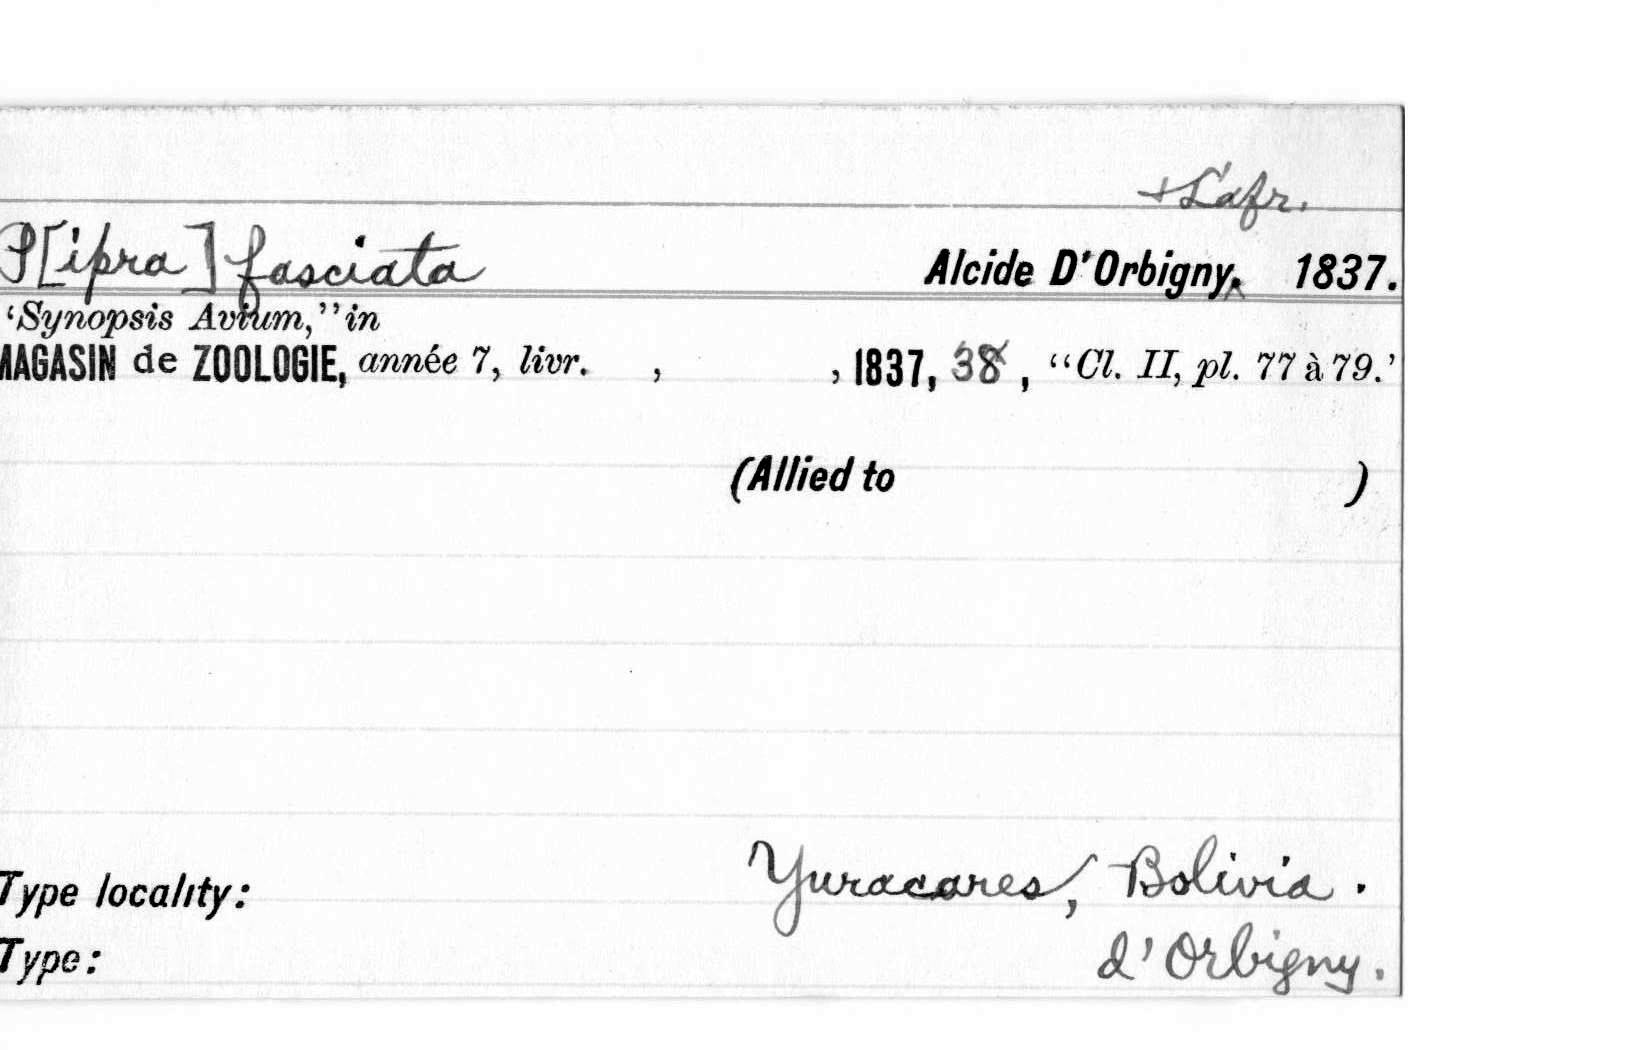 + Lafr.
P[ipra] fasciata Alcide D'Orbigny, 1837.
‘Synopsis Avium,” in
MAGASIN de ZOOLOGIE, année 7, livr. , , 1837, 38, “Cl. II, pl. 77 à 79.’
(Allied to )
Type locality: Yuracares, Bolivia.
Type: d'Orbigny.